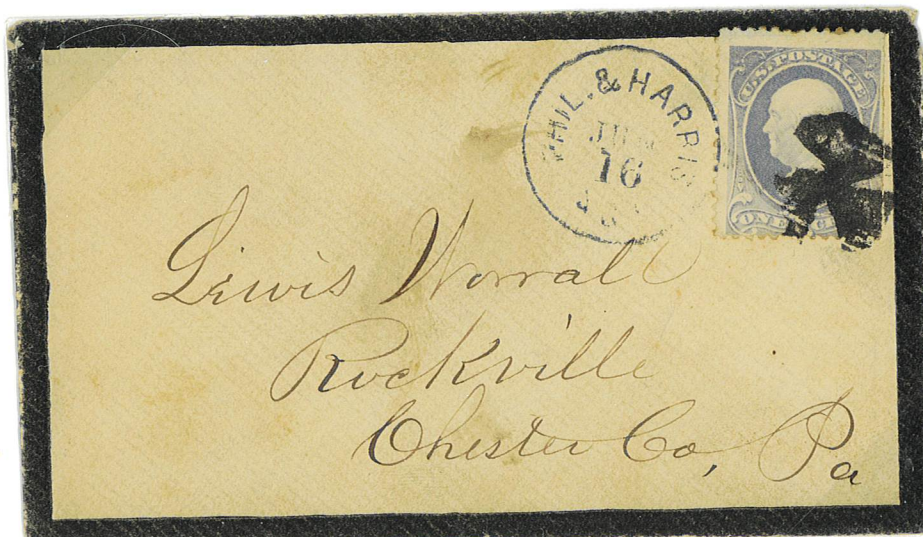 PHIL. & HARRIS
16
U.S. POSTAGE
ONE
Lewis Worrall
Rockville
Chester Co, Pa